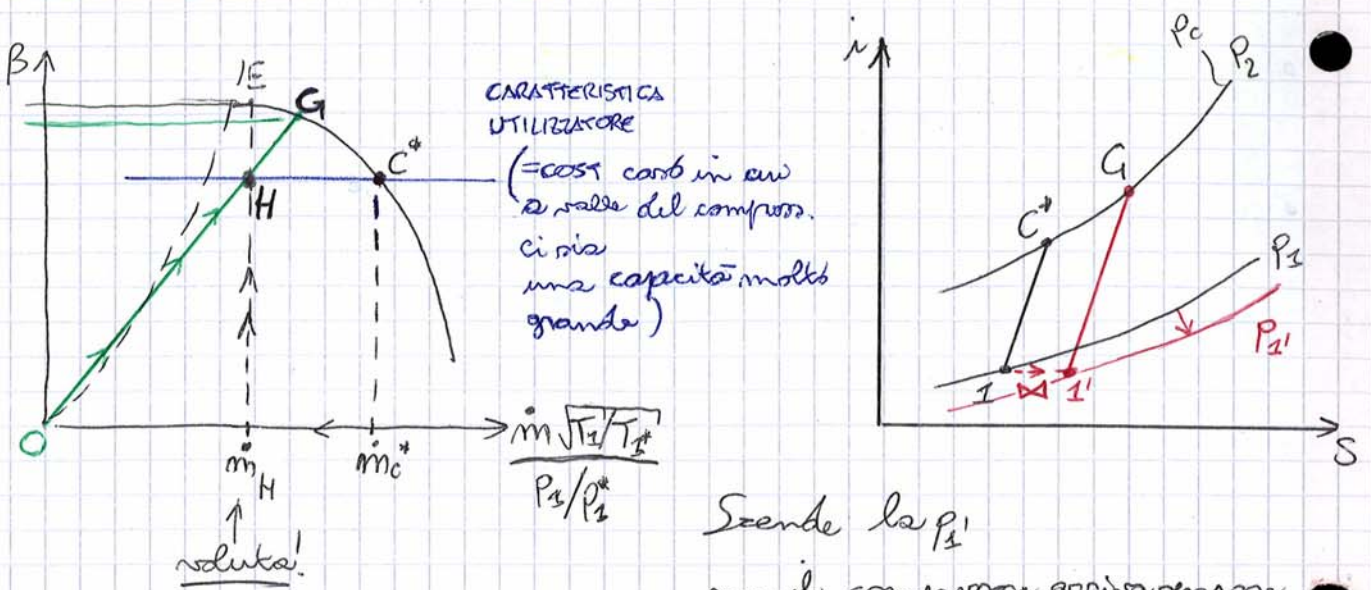 β
E
G
CARATTERISTICA
UTILIZZATORE
C*
(=cost caso in cui
a valle del compress.
ci sia
una capacità molto
grande)
H
O
ṁ_H
ṁ_C*
ṁ √T1/T1*
P1/P1*
voluta!
i
Pc
P2
G
C*
P1
P1'
1
1'
S
Scende la p1'